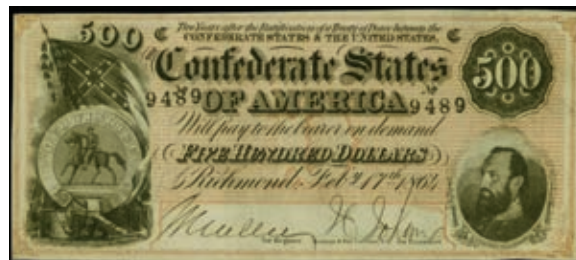 500 C Two Years after the Ratification of a Treaty of Peace between the C
CONFEDERATE STATES & THE UNITED STATES,
Confederate States
500
No 9489 OF AMERICA No 9489
Will pay to the bearer on demand
FIVE HUNDRED DOLLARS
Richmond, Feby 17th 1864
For Register
For Treasurer